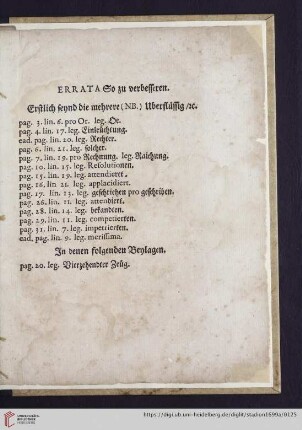 ERRATA So zu verbesseren.
Erstlich seynd die mehrere (NB.) Uberflüssig/ꝛc.
pag. 3. lin. 6. pro Or. leg. Oe.
pag. 4. lin. 17. leg. Einleüchtung.
ead. pag. lin. 20. leg. Rechter.
pag. 6. lin. 21. leg. solcher.
pag. 7. lin. 19. pro Rechnung. leg. Raichung.
pag. 10. lin. 15. leg. Resolutionen.
pag. 15. lin. 19. leg. attendieret.
pag. 16. lin 21. leg. applacidirt.
pag. 17. lin. 23. leg. geschriehen pro geschriben.
pag. 26. lin 11. leg. attendirt.
pag. 28. lin. 14. leg. bekandten.
pag. 29. lin. 11. leg. competierten.
pag. 31. lin. 7. leg. impetrierten.
ead. pag. lin. 9. leg. meritissima.
In denen folgenden Beylagen.
pag. 20. leg. Vierzehendter Zeüg.
https://digi.ub.uni-heidelberg.de/diglit/stadion1699a/0125
UNIVERSITÄTS-
BIBLIOTHEK
HEIDELBERG